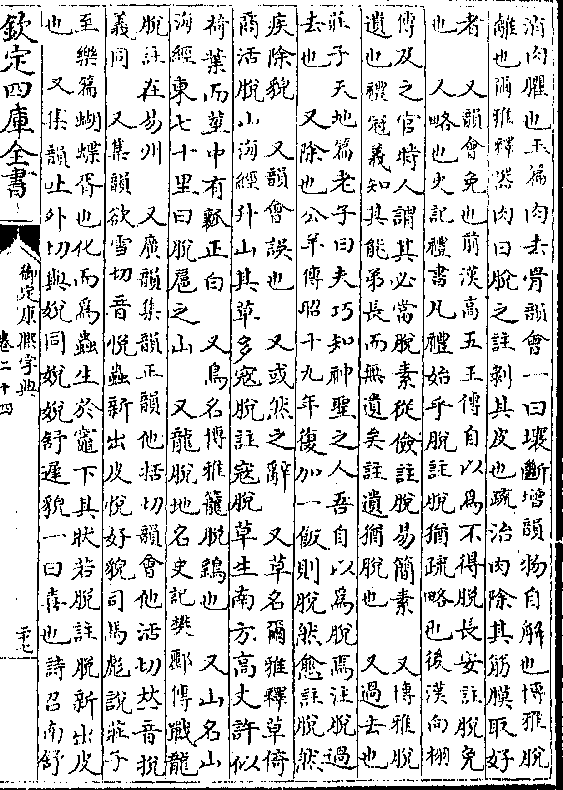 消肉臞也玉篇肉去骨韻會一曰壞斷增韻物自解也博雅脫
離也爾雅釋器肉曰脫之註剝其皮也疏治肉除其筋膜取好
者 又韻會免也前漢高五王傳自以爲不得脫長安註脫免
也 人略也史記禮書凡禮始乎脫註脫猶疏略也後漢向栩
傳及之官時人謂其必當脫素從儉註脫易簡素 又博雅脫
遺也禮冠義知其能弟長而無遺矣註遺猶脫也 又過去也
莊子天地篇老子曰夫巧知神聖之人吾自以爲脫焉注脫過
去也 又除也公羊傳昭十九年復加一飯則脫然愈註脫然
疾除貌 又韻會誤也 又或然之辭 又草名爾雅釋草倚
商活脫山海經升山其草多寇脫註寇脫草生南方高丈許似
荷葉而莖中有瓤正白 又鳥名博雅籠脫鷂也 又山名山
海經東七十里曰脫扈之山 又龍脫地名史記樊酈傳戰龍
脫註在易州 又廣韻集韻正韻他括切韻會他活切𠀤音捝
義同 又集韻欲雪切音悅蟲新出皮悅好貌司馬彪說莊子
至樂篇蝴蝶胥也化而爲蟲生於竈下其狀若脫註脫新出皮
也 又集韻吐外切與娧同娧娧舒遲貌一曰喜也詩召南舒
欽定四庫全書
御定康熙字典
卷二十四